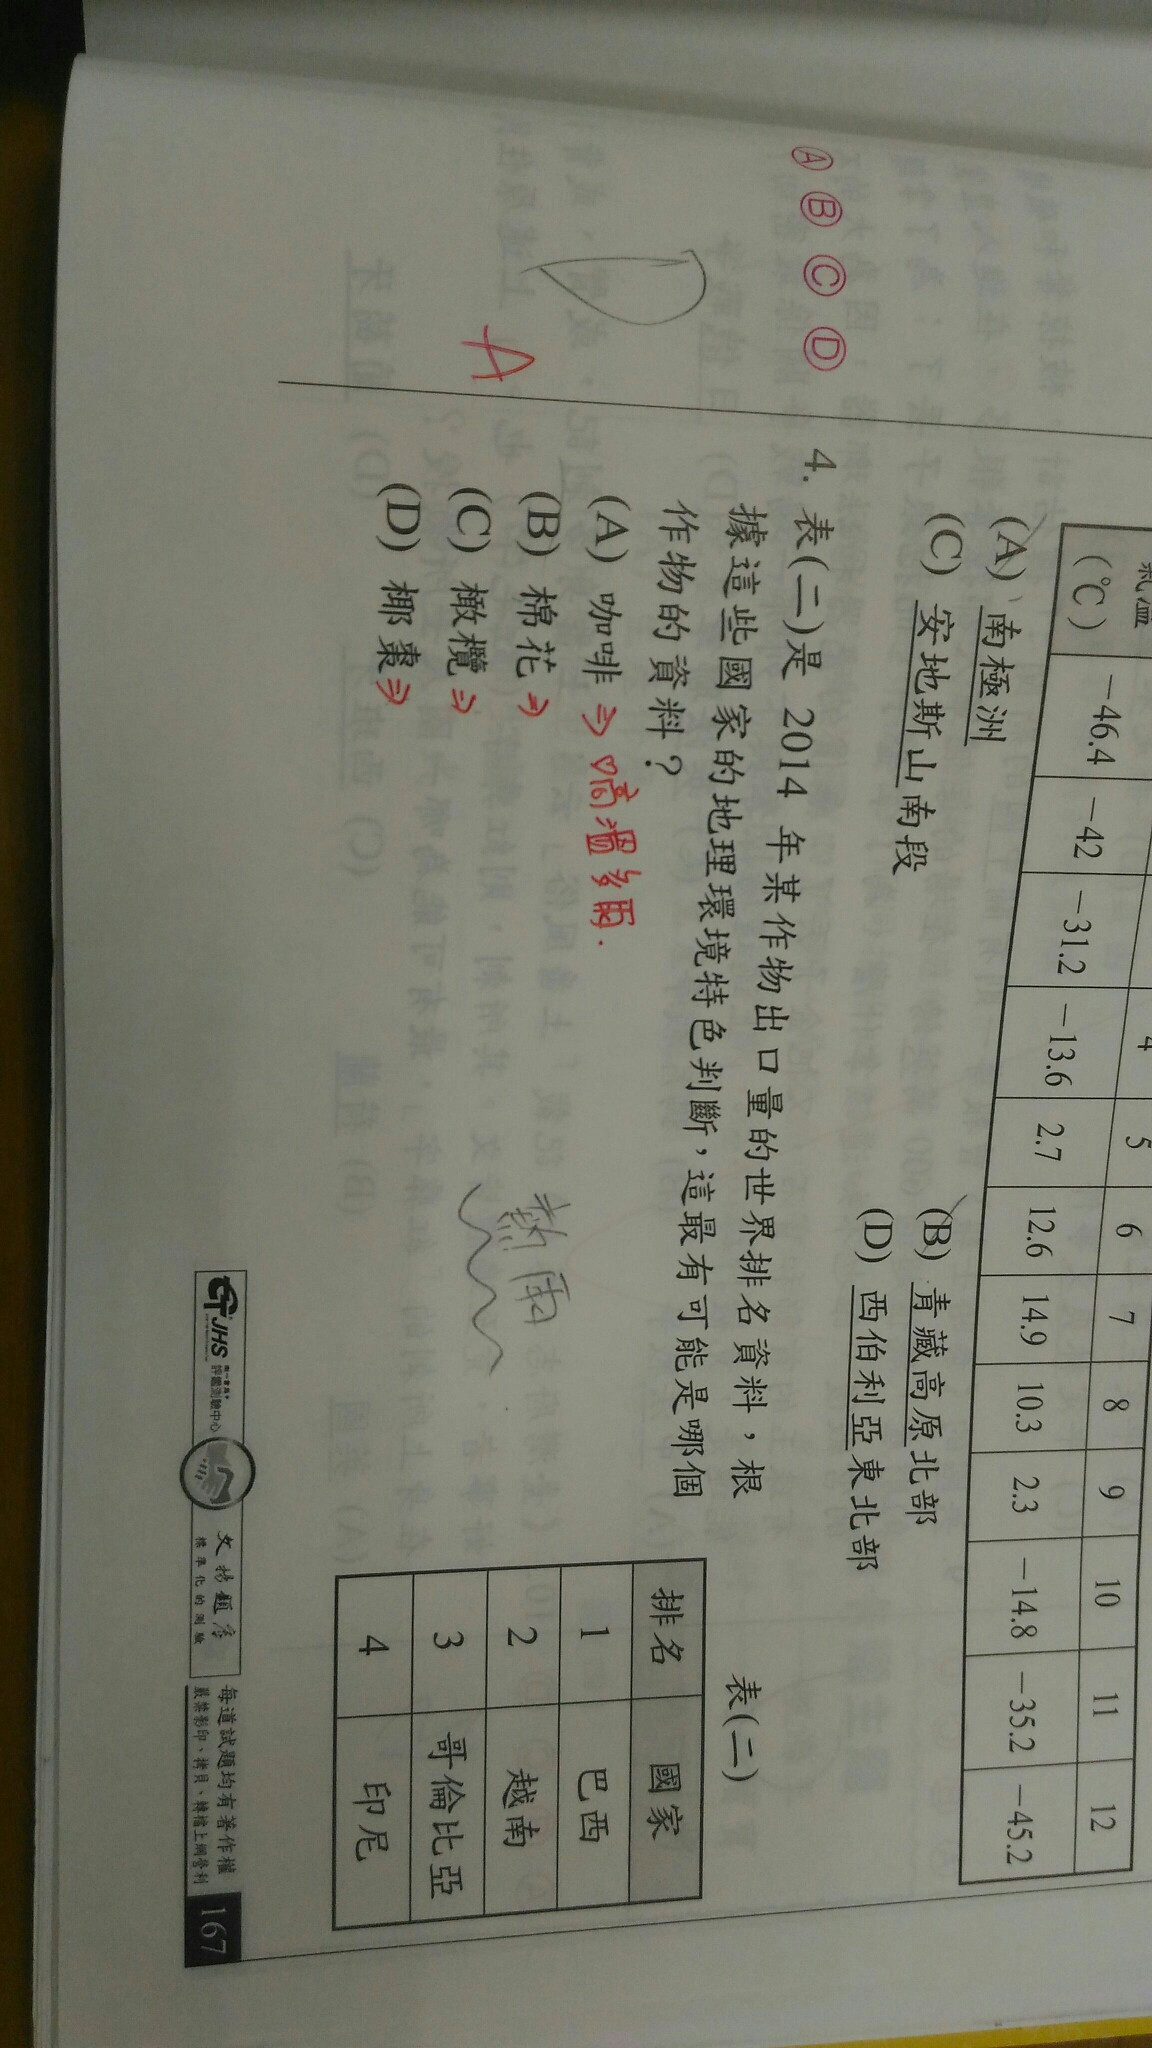 Ⓐ Ⓑ Ⓒ Ⓓ
4 5 6 7 8 9 10 11 12
氣溫
(℃) －46.4 －42 －31.2 －13.6 2.7 12.6 14.9 10.3 2.3 －14.8 －35.2 －45.2
(A) 南極洲 (B) 青藏高原北部
(C) 安地斯山南段 (D) 西伯利亞東北部
A
4. 表(二)是 2014 年某作物出口量的世界排名資料，根
據這些國家的地理環境特色判斷，這最有可能是哪個
作物的資料？
(A) 咖啡 ⇒ 高溫多雨.
(B) 棉花⇒
(C) 橄欖⇒
(D) 椰棗⇒
熱雨
表(二)
排名 國家
1 巴西
2 越南
3 哥倫比亞
4 印尼
JHS 評鑑測驗中心
文揚題庫
標準化的測驗
每道試題均有著作權
嚴禁影印、拷貝、轉檔上網營利
167